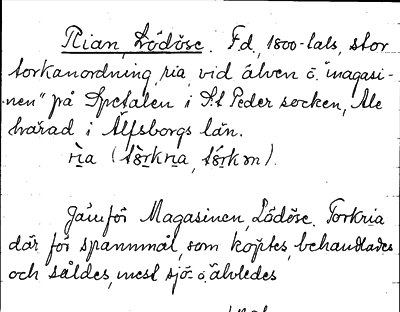 Rian, Lödöse. F.d., 1800-tals, stor
torkanordning, ria, vid älven o. "magasi-
nen" på Spetalen i S:t Peder socken, Ale
härad i Älfsborgs län.
ria (tørkria, tørkm).
Jämför Magasinen, Lödöse. Torkria
där för spannmål, som köptes, behandlades
och såldes, mest sjö- o. älvledes